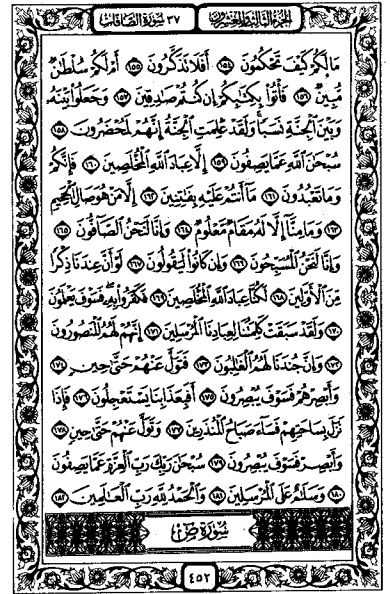 الجزء الثالث والعشرون ٣٧ سورة الصافات
مَا لَكُمْ كَيْفَ تَحْكُمُونَ ١٥٤ أَفَلَا تَذَكَّرُونَ ١٥٥ أَمْ لَكُمْ سُلْطَٰنٌ
مُّبِينٌ ١٥٦ فَأْتُوا۟ بِكِتَٰبِكُمْ إِن كُنتُمْ صَٰدِقِينَ ١٥٧ وَجَعَلُوا۟ بَيْنَهُۥ
وَبَيْنَ ٱلْجِنَّةِ نَسَبًا ۚ وَلَقَدْ عَلِمَتِ ٱلْجِنَّةُ إِنَّهُمْ لَمُحْضَرُونَ ١٥٨
سُبْحَٰنَ ٱللَّهِ عَمَّا يَصِفُونَ ١٥٩ إِلَّا عِبَادَ ٱللَّهِ ٱلْمُخْلَصِينَ ١٦٠ فَإِنَّكُمْ
وَمَا تَعْبُدُونَ ١٦١ مَآ أَنتُمْ عَلَيْهِ بِفَٰتِنِينَ ١٦٢ إِلَّا مَنْ هُوَ صَالِ ٱلْجَحِيمِ
١٦٣ وَمَا مِنَّآ إِلَّا لَهُۥ مَقَامٌ مَّعْلُومٌ ١٦٤ وَإِنَّا لَنَحْنُ ٱلصَّآفُّونَ ١٦٥
وَإِنَّا لَنَحْنُ ٱلْمُسَبِّحُونَ ١٦٦ وَإِن كَانُوا۟ لَيَقُولُونَ ١٦٧ لَوْ أَنَّ عِندَنَا ذِكْرًا
مِّنَ ٱلْأَوَّلِينَ ١٦٨ لَكُنَّا عِبَادَ ٱللَّهِ ٱلْمُخْلَصِينَ ١٦٩ فَكَفَرُوا۟ بِهِۦ ۖ فَسَوْفَ يَعْلَمُونَ
١٧٠ وَلَقَدْ سَبَقَتْ كَلِمَتُنَا لِعِبَادِنَا ٱلْمُرْسَلِينَ ١٧١ إِنَّهُمْ لَهُمُ ٱلْمَنصُورُونَ
١٧٢ وَإِنَّ جُندَنَا لَهُمُ ٱلْغَٰلِبُونَ ١٧٣ فَتَوَلَّ عَنْهُمْ حَتَّىٰ حِينٍ ١٧٤
وَأَبْصِرْهُمْ فَسَوْفَ يُبْصِرُونَ ١٧٥ أَفَبِعَذَابِنَا يَسْتَعْجِلُونَ ١٧٦ فَإِذَا
نَزَلَ بِسَاحَتِهِمْ فَسَآءَ صَبَاحُ ٱلْمُنذَرِينَ ١٧٧ وَتَوَلَّ عَنْهُمْ حَتَّىٰ حِينٍ ١٧٨
وَأَبْصِرْ فَسَوْفَ يُبْصِرُونَ ١٧٩ سُبْحَٰنَ رَبِّكَ رَبِّ ٱلْعِزَّةِ عَمَّا يَصِفُونَ
١٨٠ وَسَلَٰمٌ عَلَى ٱلْمُرْسَلِينَ ١٨١ وَٱلْحَمْدُ لِلَّهِ رَبِّ ٱلْعَٰلَمِينَ ١٨٢
سُورَةُ صٓ
٤٥٢